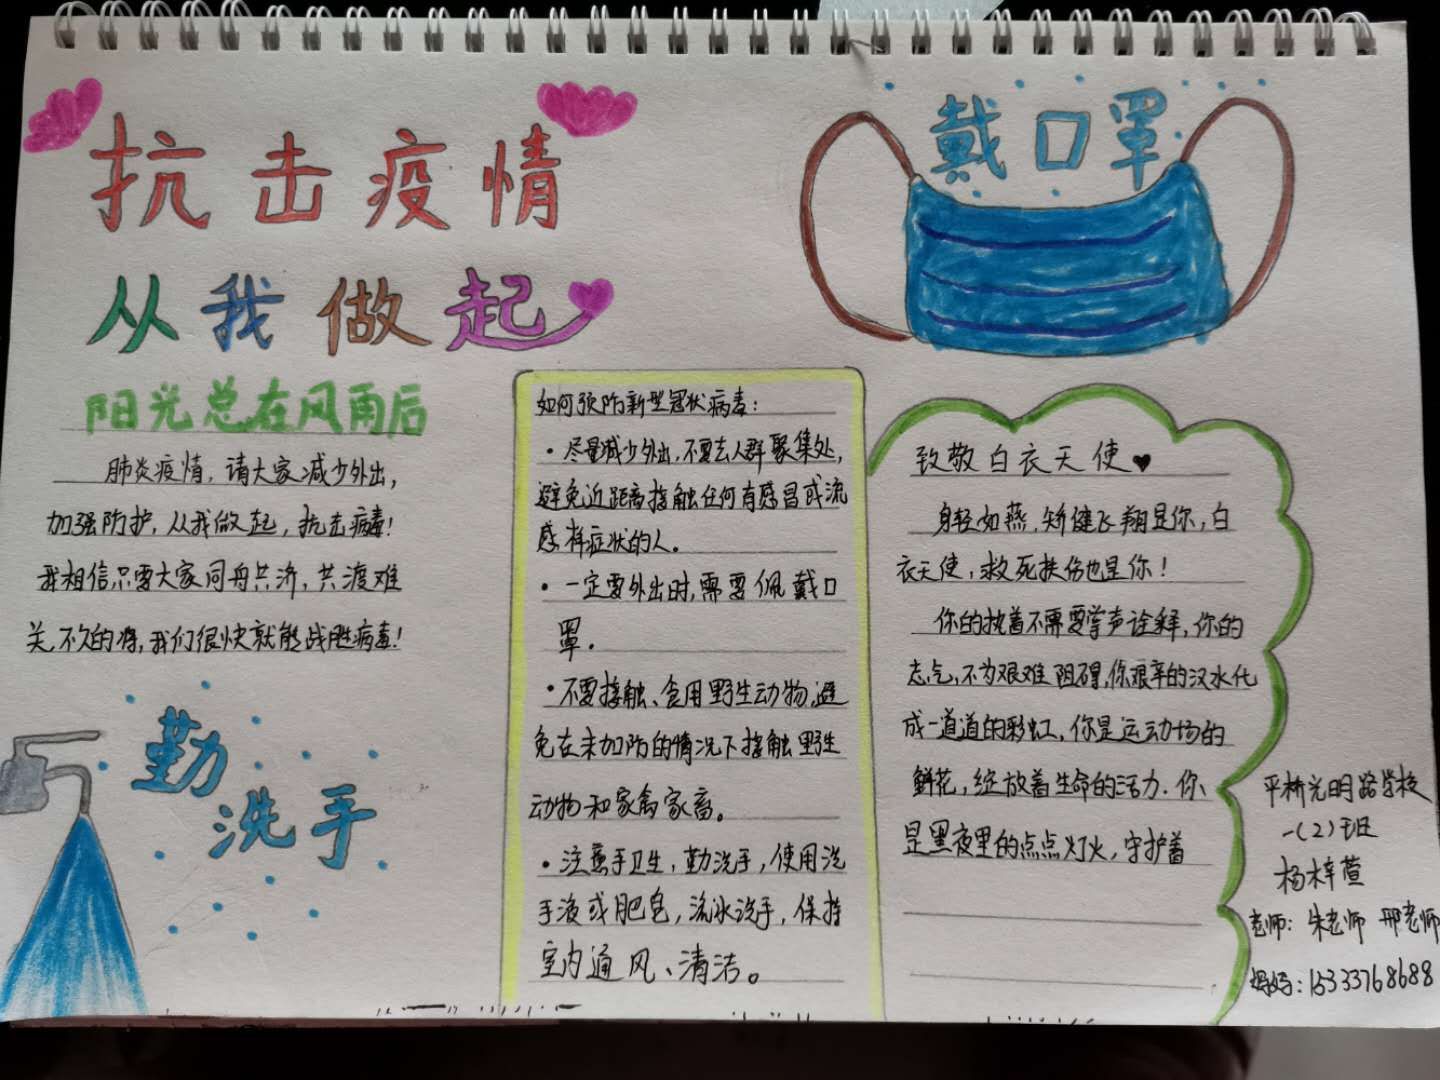 抗击疫情
从我做起
戴口罩
阳光总在风雨后
肺炎疫情,请大家减少外出,
加强防护,从我做起,抗击病毒!
我相信只要大家同舟共济,共渡难
关,不久的将,我们很快就能战胜病毒!
勤
洗手
如何预防新型冠状病毒:
·尽量减少外出,不要去人群聚集处,
避免近距离接触任何有感冒或流
感样症状的人。
·一定要外出时,需要佩戴口
罩.
·不要接触、食用野生动物,避
免在未加防的情况下接触野生
动物和家禽家畜。
·注意手卫生,勤洗手,使用洗
手液或肥皂,流水洗手,保持
室内通风、清洁。
致敬白衣天使♥
身轻如燕,矫健飞翔是你,白
衣天使,救死扶伤也是你!
你的执着不需要掌声诠释,你的
志气,不为艰难阻碍,你艰辛的汉水化
成一道道的彩虹,你是运动场的
鲜花,绽放着生命的活力.你
是黑夜里的点点灯火,守护着
平桥光明路学校
一(2)班
杨梓萱
老师:朱老师 邢老师
妈妈:15333768688